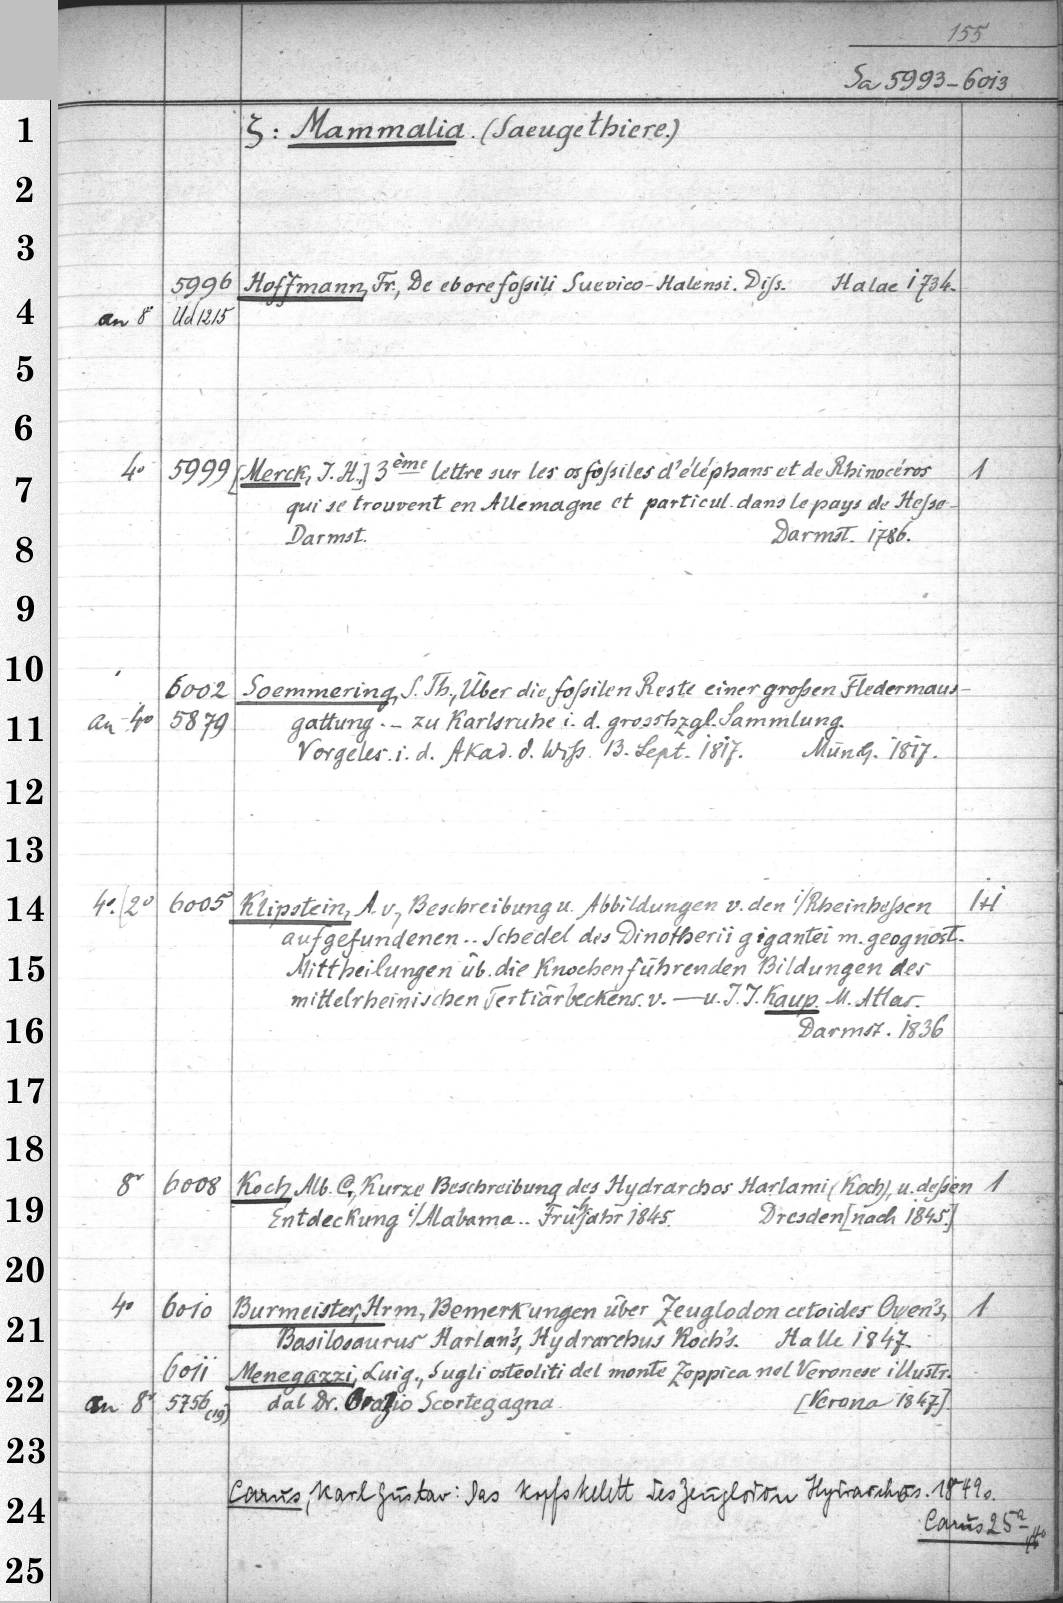 155
Sa 5993-6013
ζ: Mammalia. (Saeugethiere.)
5996 Hoffmann, Fr., De ebore foſsili Suevico-Halensi. Diſs. Halae 1734.
an 8° Ud 1215
4° 5999 [Merck, J. H.,] 3ème lettre sur les os foſsiles d'éléphans et de Rhinocéros 1
qui se trouvent en Allemagne et particul. dans le pays de Heſse-
Darmst. Darmst. 1786.
6002 Soemmering, S. Th., Über die foſsilen Reste einer großen Fledermaus-
an 4° 5879 gattung .- zu Karlsruhe i. d. grosshzgl. Sammlung.
Vorgeles. i. d. Akad. d. Wiſs. 13. Sept. 1817. Münch. 1817.
4°. (2° 6005 Klipstein, A. v., Beschreibung u. Abbildungen v. den i/Rheinheſsen 1+1
aufgefundenen .. Schedel des Dinotherii gigantei m. geognost.
Mittheilungen üb. die Knochenführenden Bildungen des
mittelrheinischen Tertiärbeckens. v. — u. J. J. Kaup. M. Atlas.
Darmst. 1836
8° 6008 Koch, Alb. C., Kurze Beschreibung des Hydrarchos Harlami (Koch), u. deſsen 1
Entdeckung i/Alabama .. Frühjahr 1845. Dresden [nach 1845.]
4° 6010 Burmeister, Hrm, Bemerkungen über Zeuglodon cetoides Owen's, 1
Basilosaurus Harlan's, Hydrarchus Koch's. Halle 1847
6011 Menegazzi, Luig., Sugli osteoliti del monte Zoppica nel Veronese illustr.
an 8° 5756 (19) dal Dr. Orazio Scortegagna [Verona 1847]
Carus, Karl Gustav: Das Kopfskelett des Zeuglodon Hydrarchos. 1849.
Carus 25a